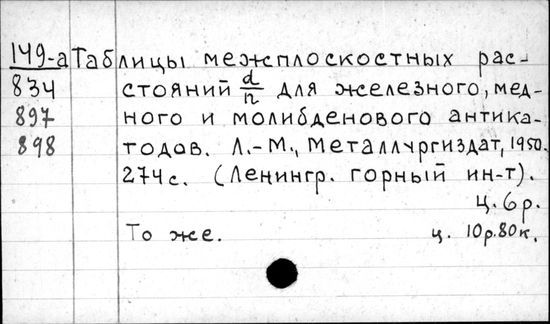 149-а Таблицы межплоскостных рас-
834 стояний d/n для железного, мед-
897 ного и молибденового антика-
898 тодов. Л.-М., Металлургиздат, 1950.
274 с. (Ленингр. горный ин-т).
ц. 6 р.
То же. ц. 10 р. 80 к.